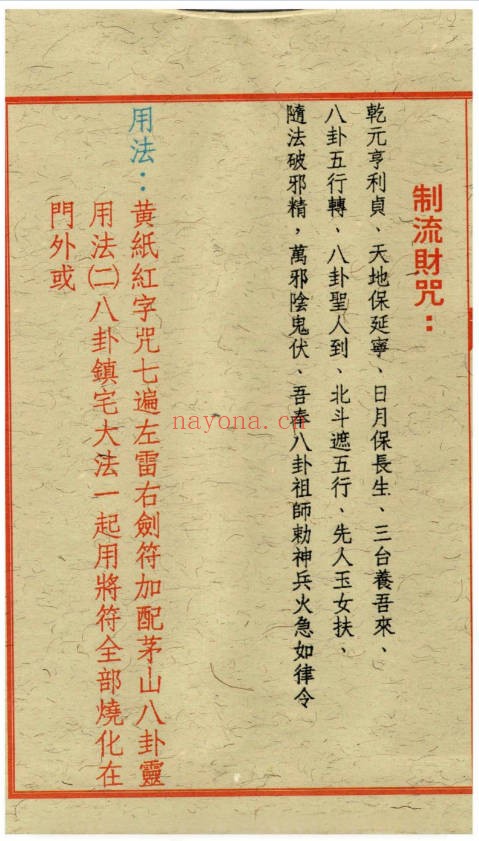 制流財咒：
乾元亨利貞、天地保延寧、日月保長生、三台養吾來、
八卦五行轉、八卦聖人到、北斗遮五行、先人玉女扶、
隨法破邪精，萬邪陰鬼伏、吾奉八卦祖師勅神兵火急如律令
用法：黄紙紅字咒七遍左雷右劍符加配茅山八卦靈
用法㈡八卦鎮宅大法一起用將符全部燒化在
門外或
nayona.cn